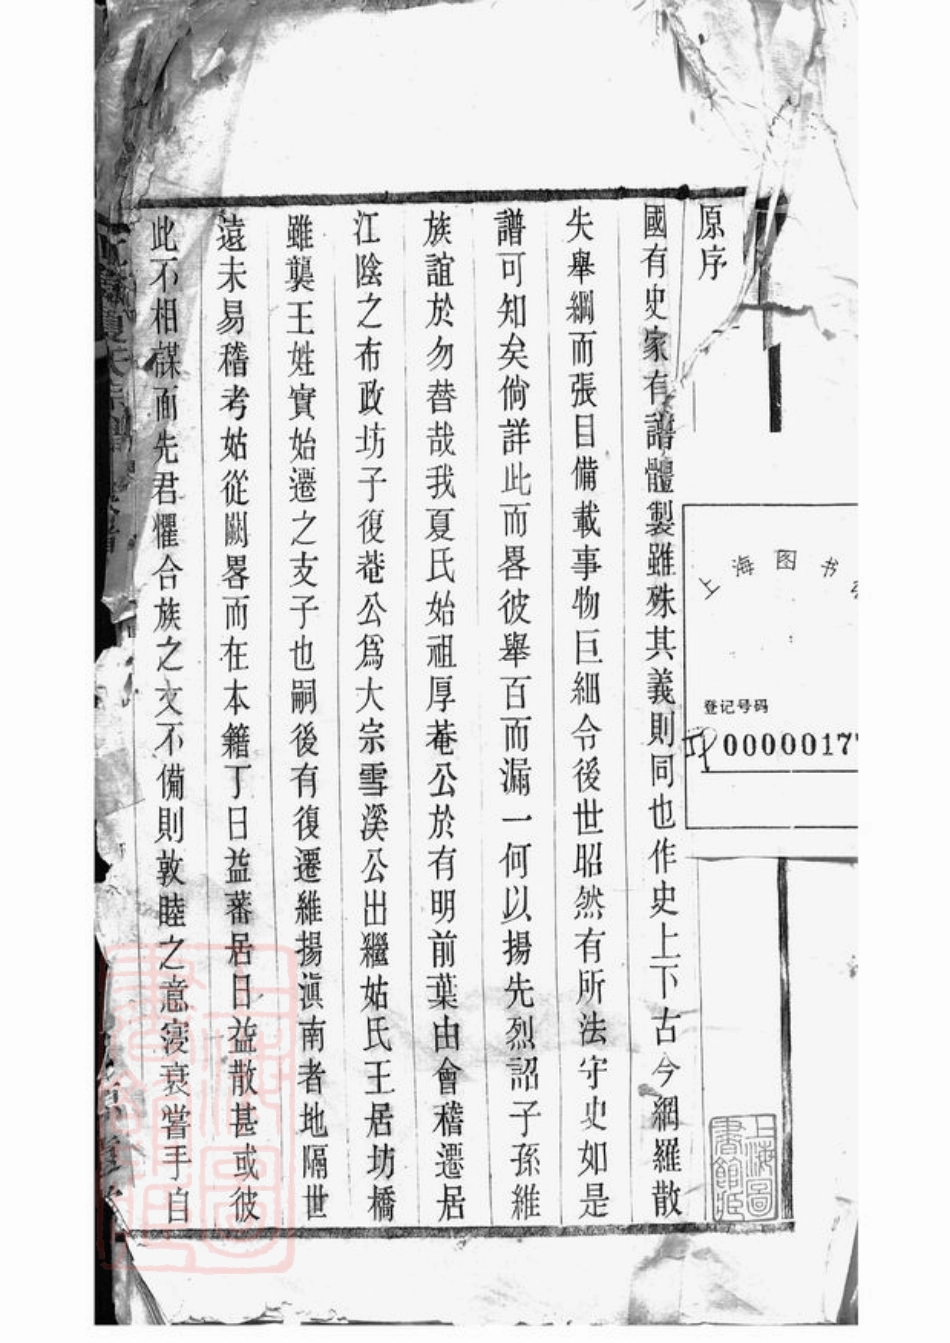 原序
國有史家有譜體製雖殊其義則同也作史上下古今網羅散
失舉綱而張目備載事物巨細令後世昭然有所法守史如是
譜可知矣倘詳此而畧彼舉百而漏一何以揚先烈詔子孫維
族誼於勿替哉我夏氏始祖厚菴公於有明前葉由會稽遷居
江陰之布政坊子復菴公爲大宗雪溪公出繼姑氏王居坊橋
雖襲王姓實始遷之支子也嗣後有復遷維揚滇南者地隔世
遠未易稽考姑從闕畧而在本籍丁日益蕃居日益散甚或彼
此不相謀面先君懼合族之文不備則敦睦之意寖衰嘗手自
夏氏宗譜
上海图书
登记号码
0000017
上海圖書館藏